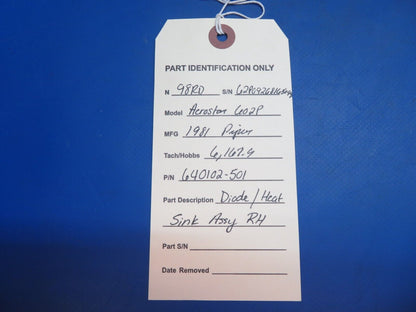 PART IDENTIFICATION ONLY
N 98RD S/N
Model Aerostar 602P
MFG 1981 Piper
Tach/Hobbs 6,167.4
P/N 640102-501
Part Description Diode/Heat
Sink Assy RH
Part S/N
Date Removed